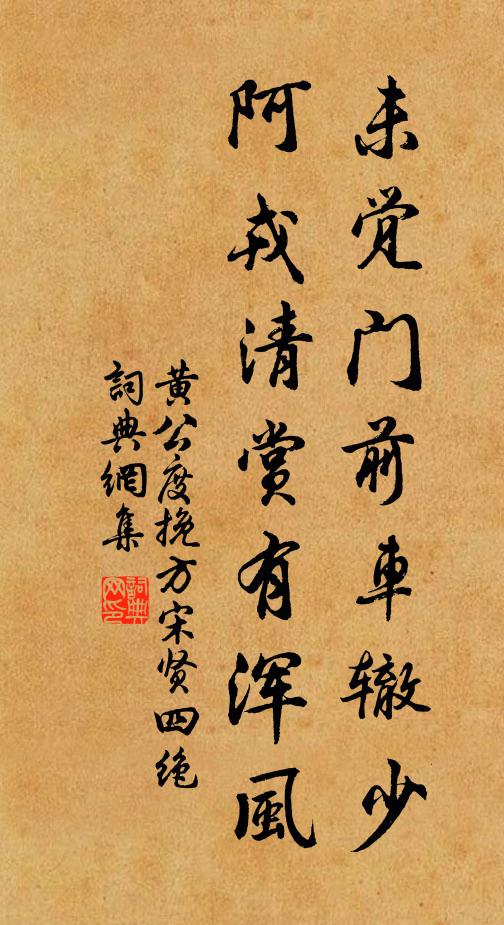 未觉门前車辙少
阿戎清赏有浑風
黄公度挽方宋贤四绝
詞典網集
詞典網印